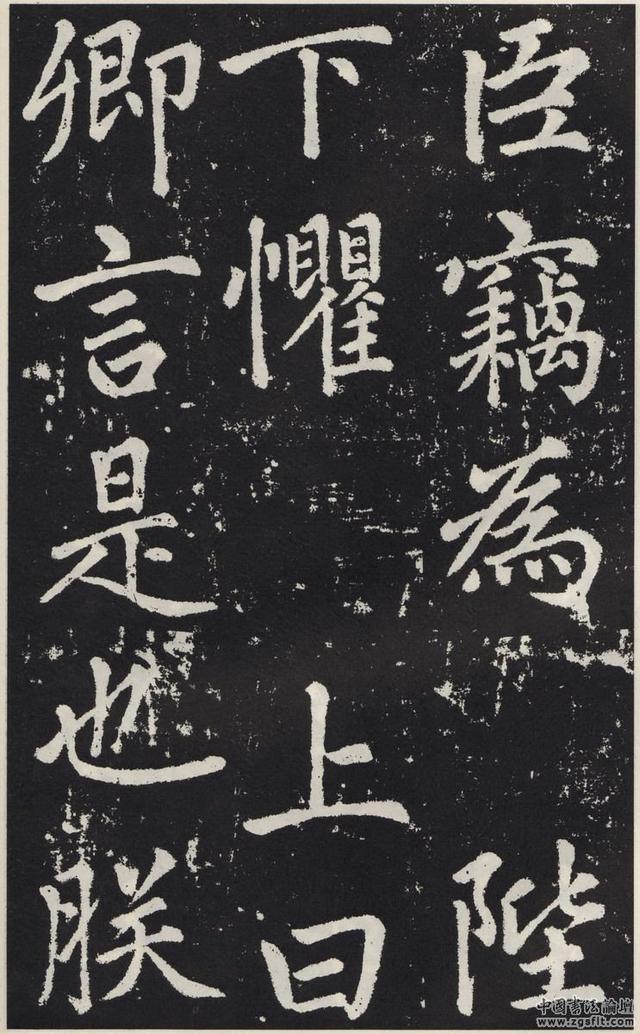 臣竊為陛
下懼上曰
卿言是也朕
中国书法论坛
www.zgsflt.com